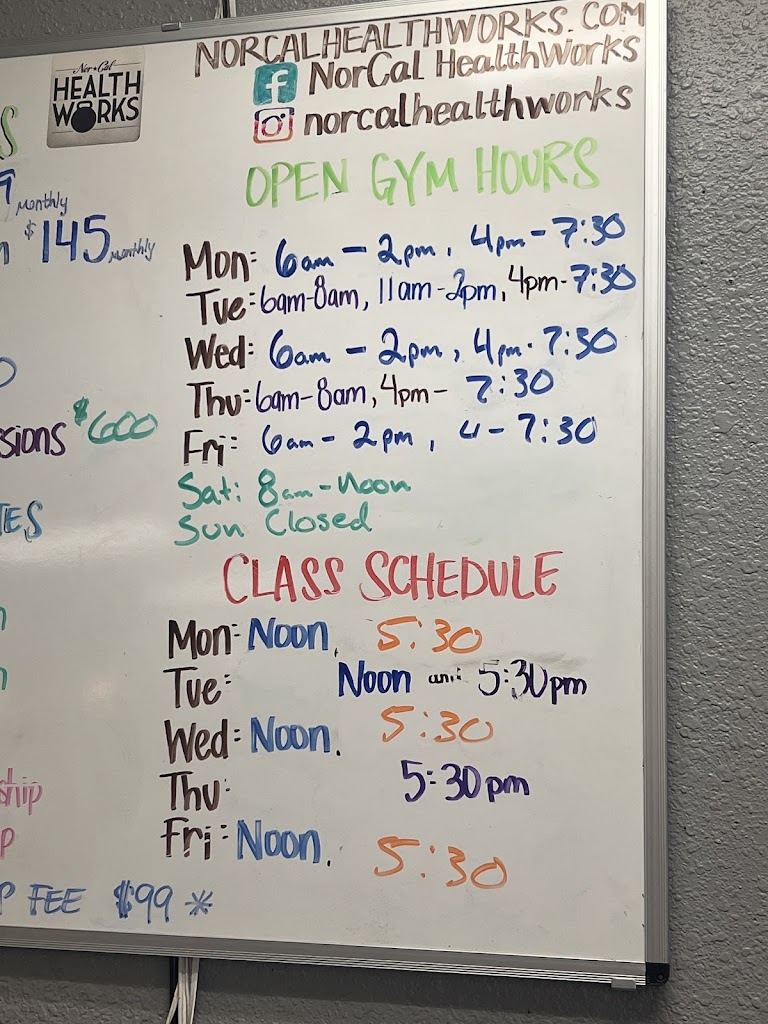 NORCALHEALTHWORKS.COM
Nor*Cal
HEALTH
WORKS
NorCal HealthWorks
norcalhealthworks
OPEN GYM HOURS
monthly
$145 monthly
Mon: 6am - 2pm, 4pm - 7:30
Tue: 6am-8am, 11am-2pm, 4pm-7:30
Wed: 6am - 2pm, 4pm - 7:30
Thu: 6am-8am, 4pm- 7:30
$600
Fri: 6am - 2pm, 4 - 7:30
Sat: 8am-Noon
Sun Closed
CLASS SCHEDULE
Mon: Noon, 5:30
Tue: Noon and 5:30pm
Wed: Noon, 5:30
Thu: 5:30pm
Fri: Noon, 5:30
FEE $99 *